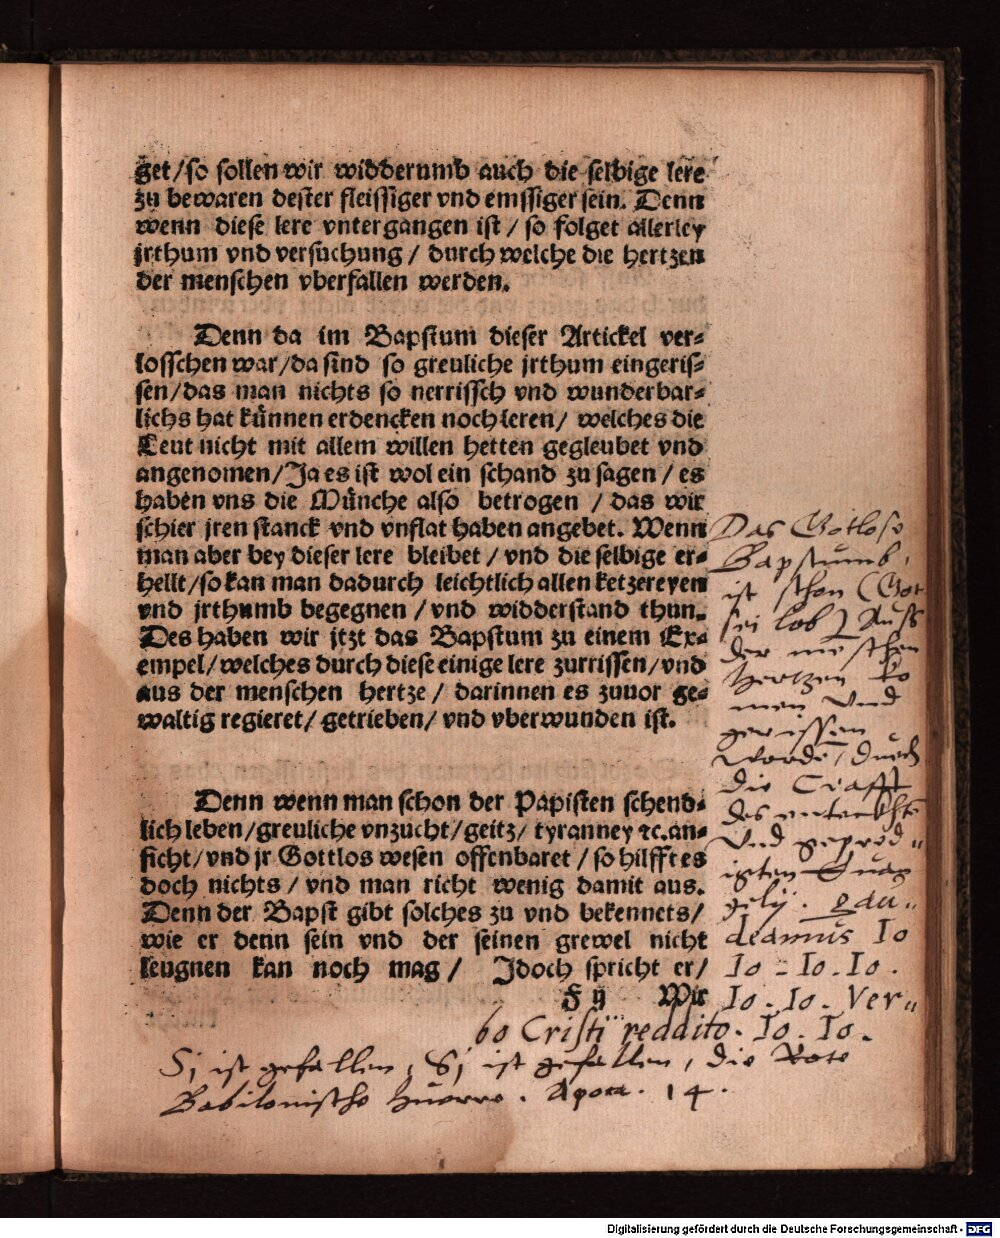 get/so sollen wir widderumb auch die selbige lere
zu bewaren dester fleissiger vnd emssiger sein. Denn
wenn diese lere vntergangen ist / so folget allerley
jrthum vnd versuchung / durch welche die hertzen
der menschen vberfallen werden.
Denn da im Bapstum dieser Artickel ver-
losschen war/da sind so greuliche jrthum eingeris-
sen/das man nichts so nerrissch vnd wunderbar-
lichs hat künnen erdencken noch leren/ welches die
Leut nicht mit allem willen hetten gegleubet vnd
angenomen/Ja es ist wol ein schand zu sagen / es
haben vns die Münche also betrogen / das wir
schier jren stanck vnd vnflat haben angebet. Wenn
man aber bey dieser lere bleibet / vnd die selbige er-
hellt/so kan man dadurch leichtlich allen ketzereyen
vnd jrthumb begegnen / vnd widderstand thun.
Des haben wir jtzt das Bapstum zu einem Ex-
empel/welches durch diese einige lere zurrissen/vnd
aus der menschen hertze / darinnen es zuuor ge-
waltig regieret/ getrieben/ vnd vberwunden ist.
Denn wenn man schon der Papisten schend-
lich leben/greuliche vnzucht/geitz/ tyranney ꝛc.an-
ficht/vnd jr Gottlos wesen offenbaret / so hilfft es
doch nichts / vnd man richt wenig damit aus.
Denn der Bapst gibt solches zu vnd bekennets/
wie er denn sein vnd der seinen grewel nicht
leugnen kan noch mag / Jdoch spricht er/
F ij Wir
Das Gotlose
Bapstumb,
ist schon (Got
sei lob) Auss
der menschen
Hertzen ko
men Vnd
gerissen
worde, durch
die Crafft
des
Vnd gepred„
igten Euan
gelij. gau„
deamus Io
Io - Io. Io.
Io. Io. Ver„
bo Cristi reddito. Io. Io.
Si ist gefallen, Si ist gefallen, die Rote
Babilonische Huorre. Apoca. 14.
Digitalisierung gefördert durch die Deutsche Forschungsgemeinschaft - DFG